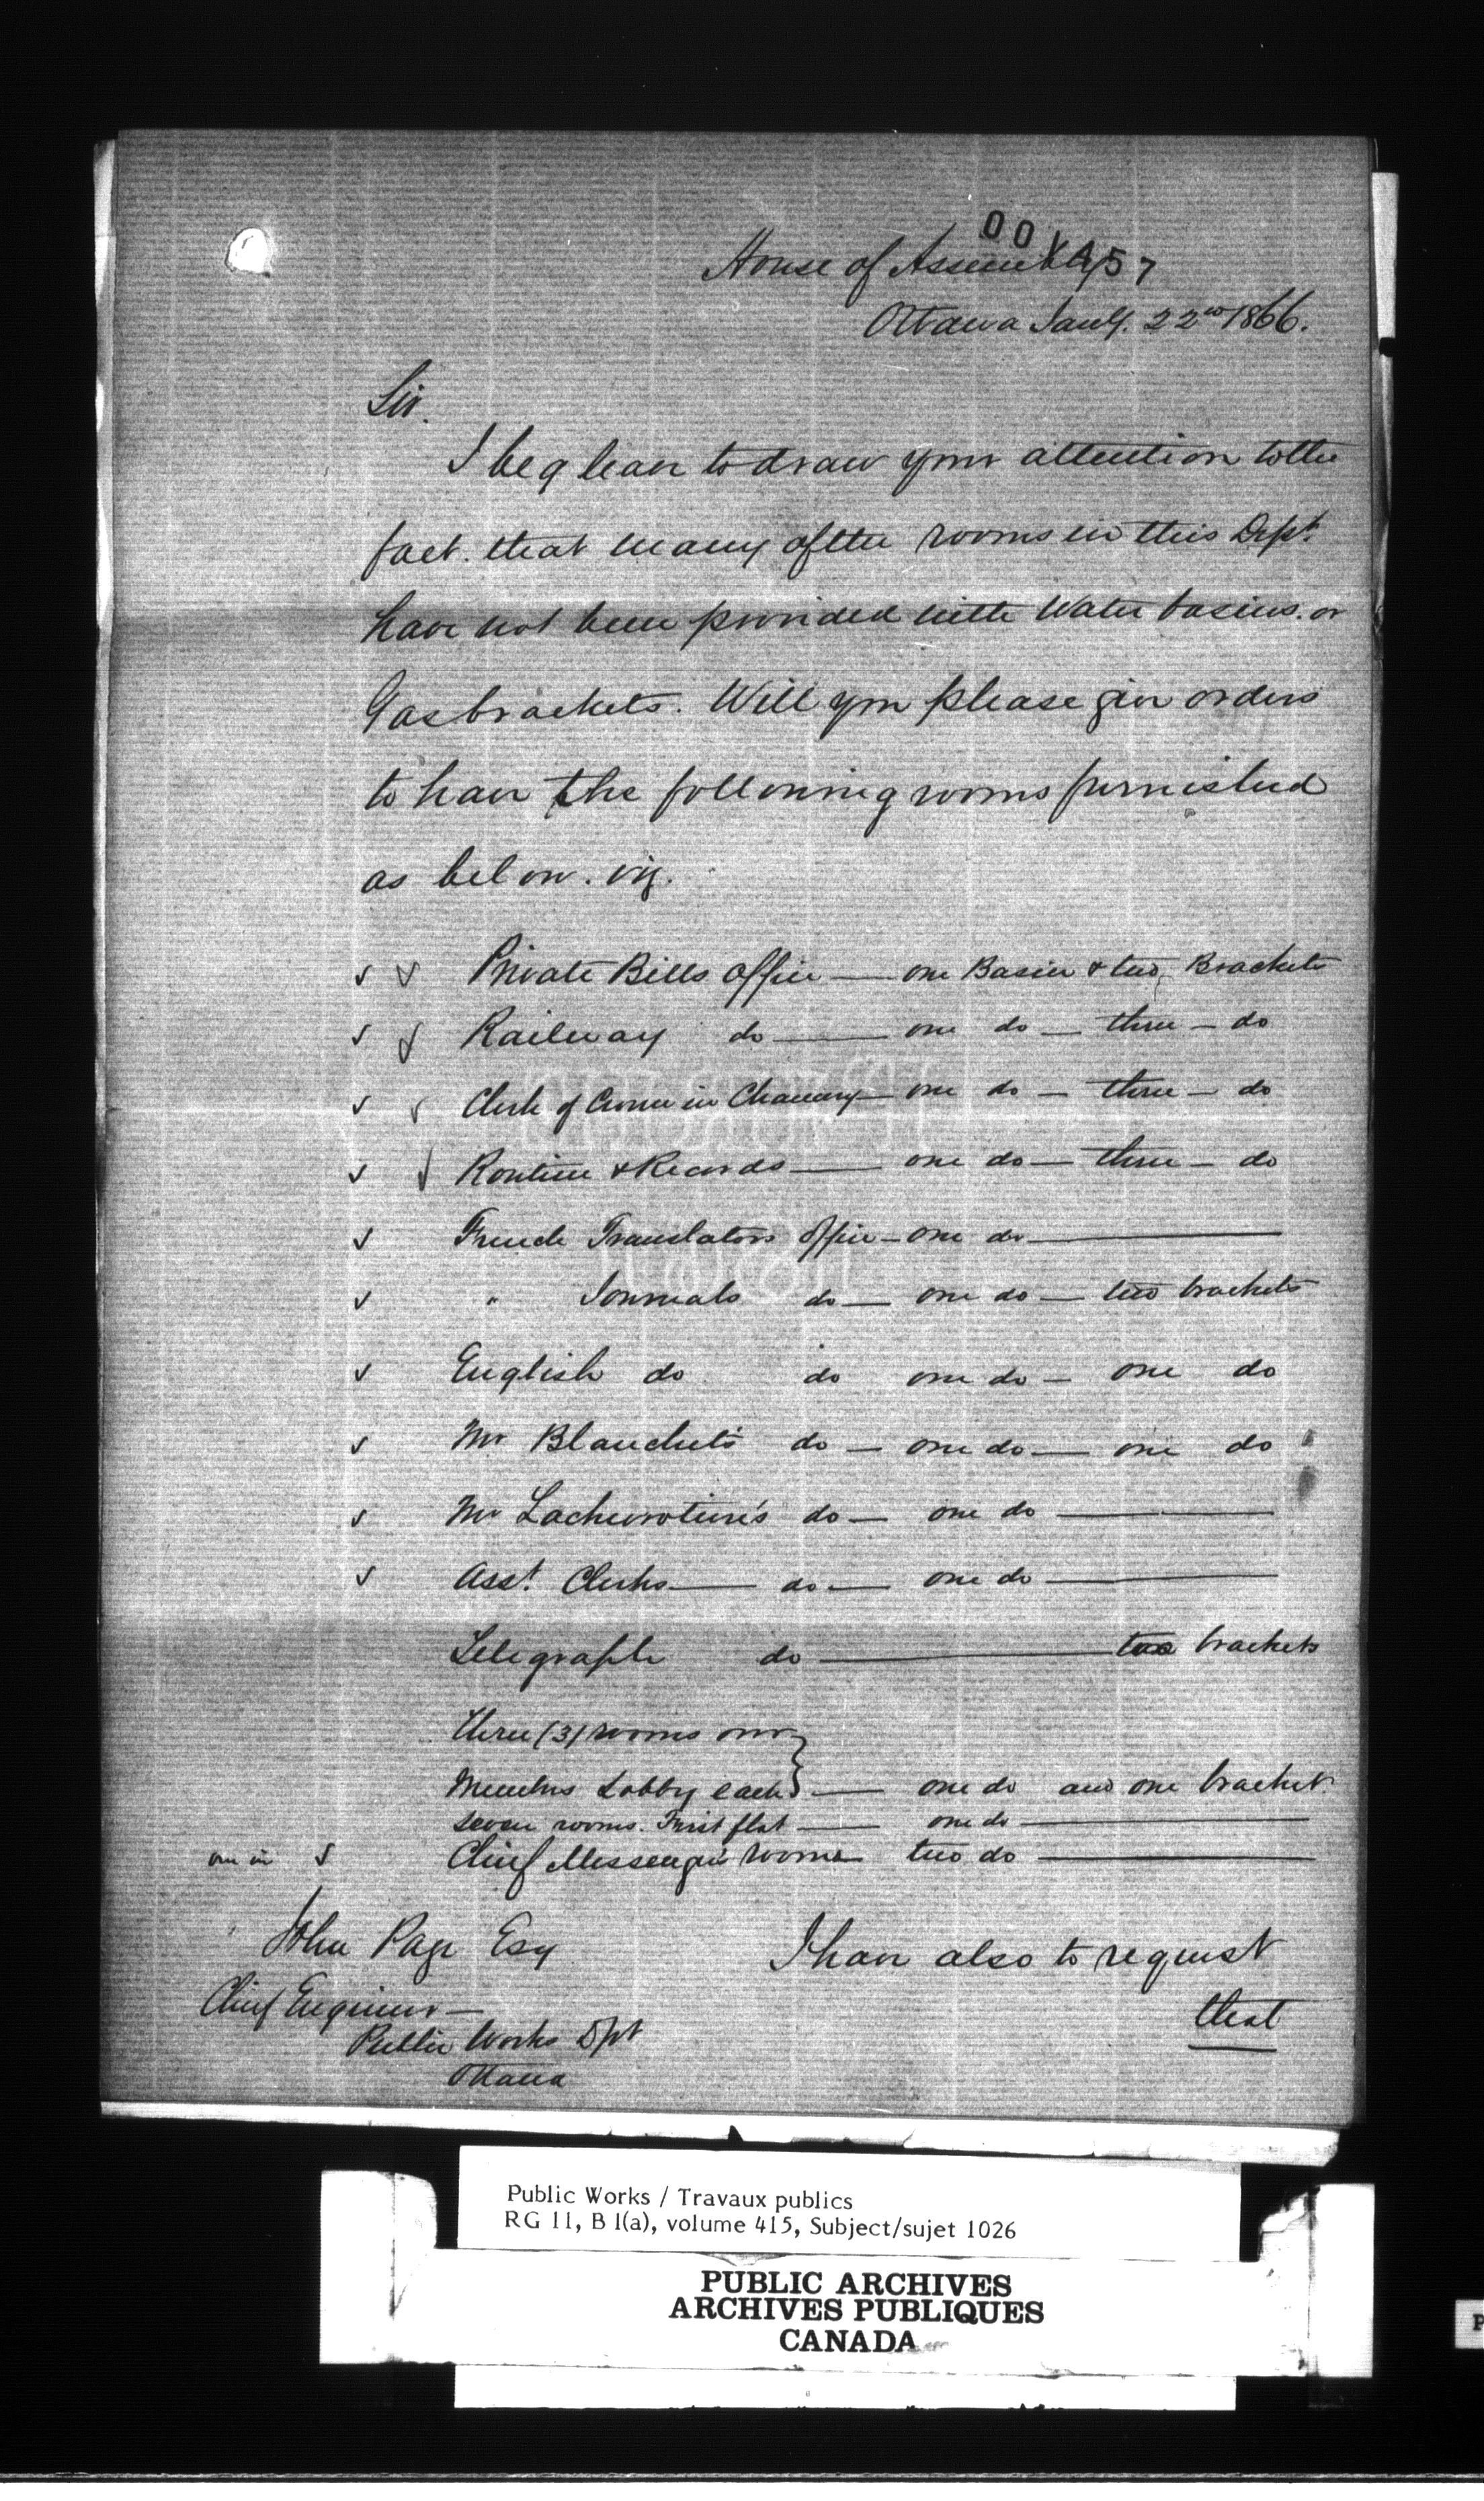 001457
House of Assembly
Ottawa Jany. 22nd 1866.
Sir.
I beg leave to draw your attention to the
fact. that many of the rooms in this Dept.
have not been provided with Water basins. or
Gas brackets. Will you please give orders
to have the following rooms furnished
as below. viz.
Private Bills Office — one Basin & two Brackets
Railway do — one do — three — do
Clerk of Crown in Chancery — one do — three — do
Routine & Records — one do — three — do
French Translators Office — one do —
" Journals do — one do — two brackets
English do do one do — one do
Mr Blanchet's do — one do — one do
Mr do — one do —
Asst. Clerks — do — one do —
Telegraph do — two brackets
three (3) rooms over
Members Lobby each } — one do and one bracket
seven rooms. First flat — one do —
one in Chief Messengers rooms two do —
John Page Esq
Chief Engineer —
Public Works Dpt
Ottawa
I have also to request
that
Public Works / Travaux publics
RG 11, B 1(a), volume 415, Subject/sujet 1026
PUBLIC ARCHIVES
ARCHIVES PUBLIQUES
CANADA
P